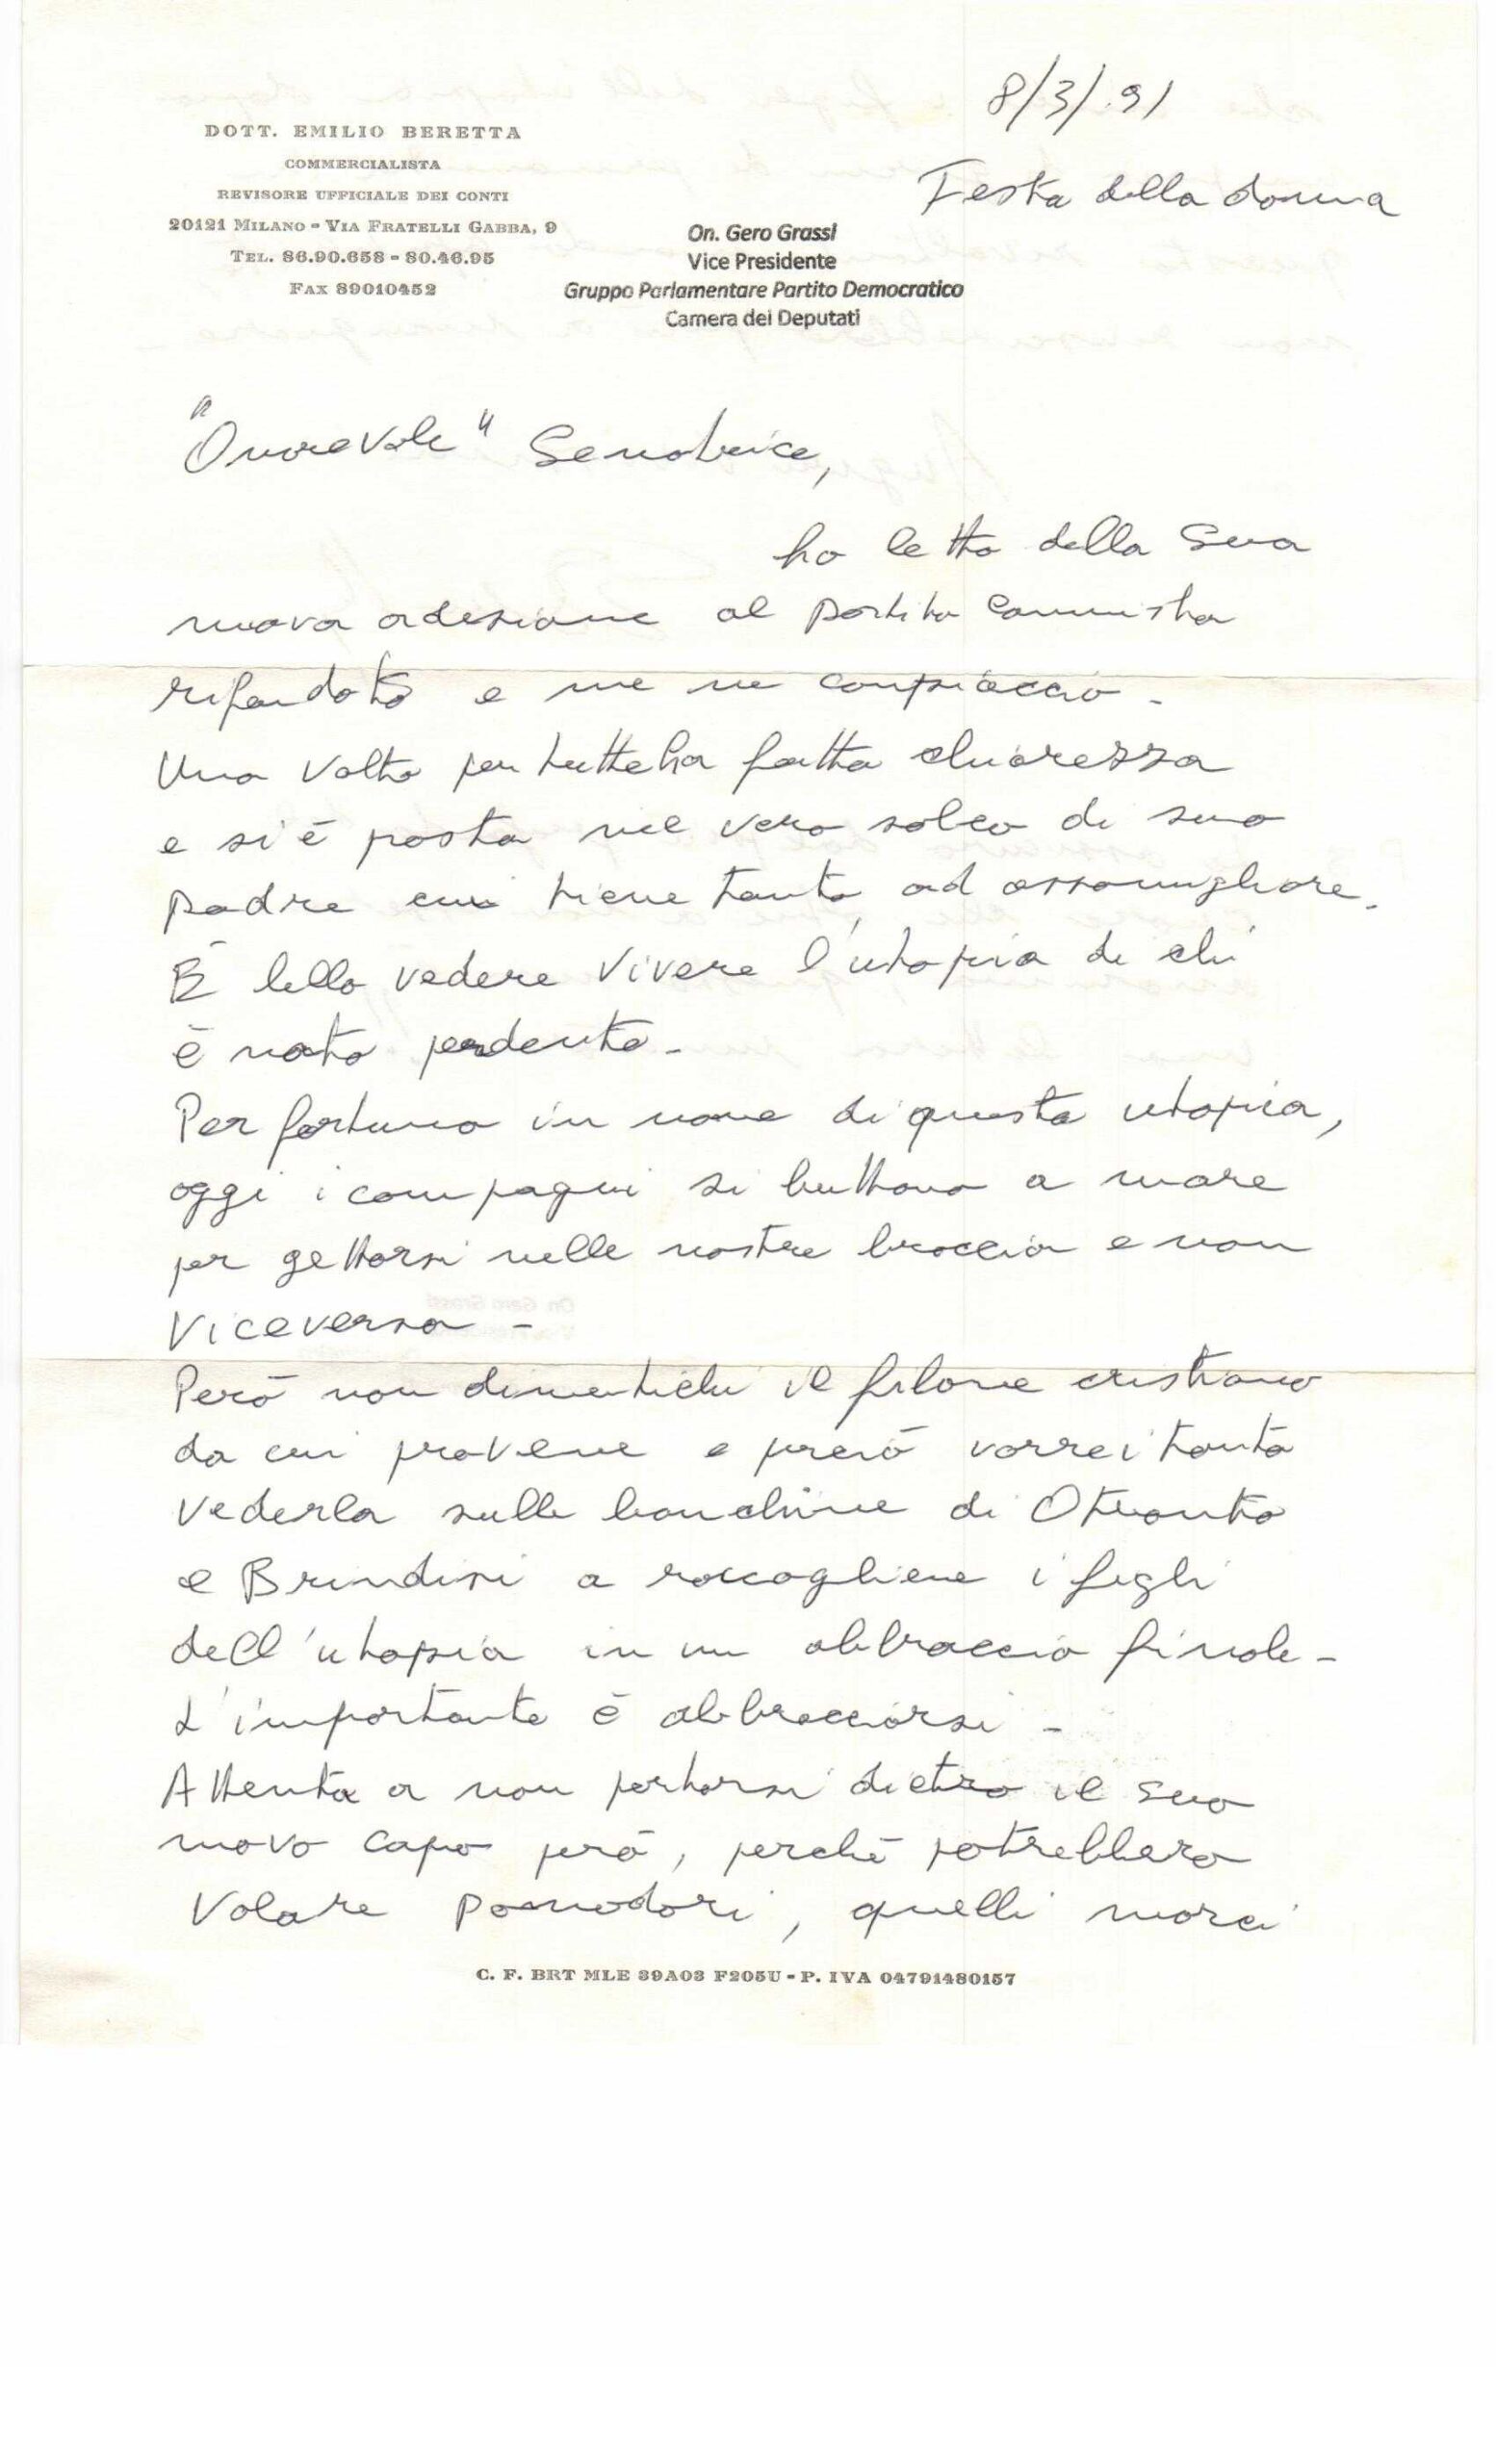 8/3/.91
Festa della donna
DOTT. EMILIO BERETTA
COMMERCIALISTA
REVISORE UFFICIALE DEI CONTI
20121 MILANO - VIA FRATELLI GABBA, 9
TEL. 86.90.658 - 80.46.95
FAX 89010452
On. Gero Grassi
Vice Presidente
Gruppo Parlamentare Partito Democratico
Camera dei Deputati
"Onorevole" Senatrice,
ho letto della Sua
nuova adesione al partito comunista
rifondato e me ne compiaccio -
Una volta per tutte ha fatto chiarezza
e si è posta nel vero solco di suo
padre cui tiene tanto ad assomigliare.
È bello vedere vivere l'utopia di chi
è nato perdente -
Per fortuna in nome di questa utopia,
oggi i compagni si buttano a mare
per gettarsi nelle nostre braccia e non
viceversa -
Però non dimentichi il filone cristiano
da cui proviene e perciò vorrei tanto
vederla sulle banchine di Otranto
e Brindisi a raccogliere i figli
dell'utopia in un abbraccio finale -
L'importante è abbracciarsi -
Attenta a non portarsi dietro il suo
nuovo capo però, perché potrebbero
volare pomodori, quelli marci
C. F. BRT MLE 39A03 F205U - P. IVA 04791480157